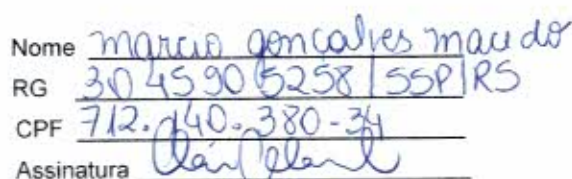 Nome marcio gonçalves macedo
RG 3045905258/SSP/RS
CPF 712.140.380-34
Assinatura